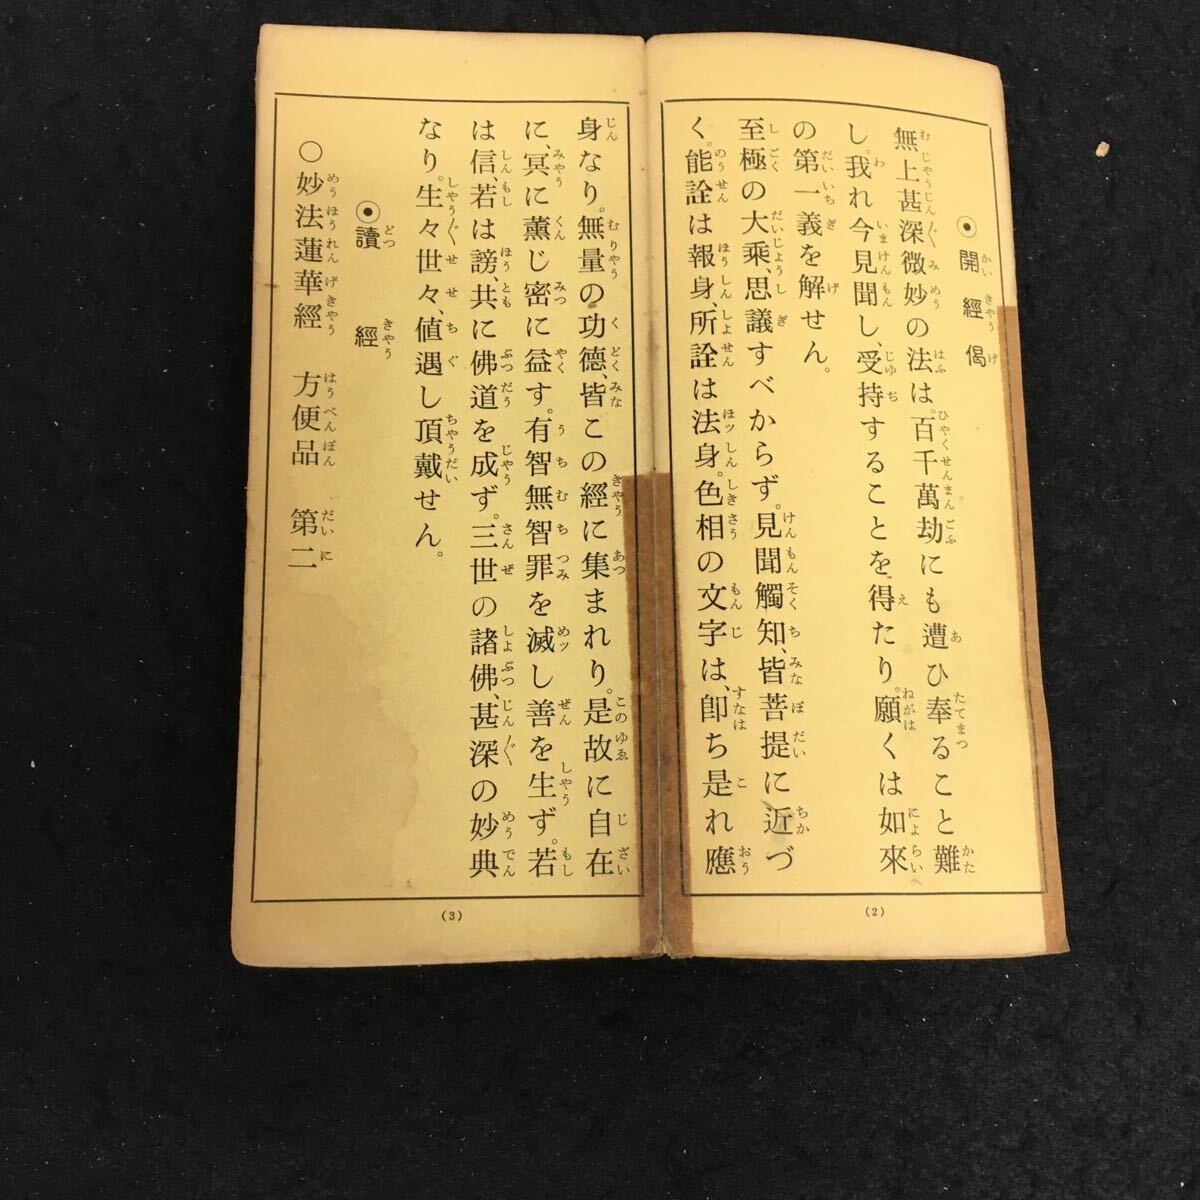 ⦿開經偈
無上甚深微妙の法は。百千萬劫にも遭ひ奉ること難
し。我れ今見聞し、受持することを得たり。願くは如來
の第一義を解せん。
至極の大乘、思議すべからず。見聞觸知、皆菩提に近づ
く。能詮は報身、所詮は法身。色相の文字は、卽ち是れ應
(2)
身なり。無量の功德、皆この經に集まれり。是故に自在
に、冥に薰じ密に益す。有智無智罪を滅し善を生ず。若
は信、若は謗、共に佛道を成ず。三世の諸佛、甚深の妙典
なり。生々世々、値遇し頂戴せん。
⦿讀經
○妙法蓮華經 方便品 第二
(3)